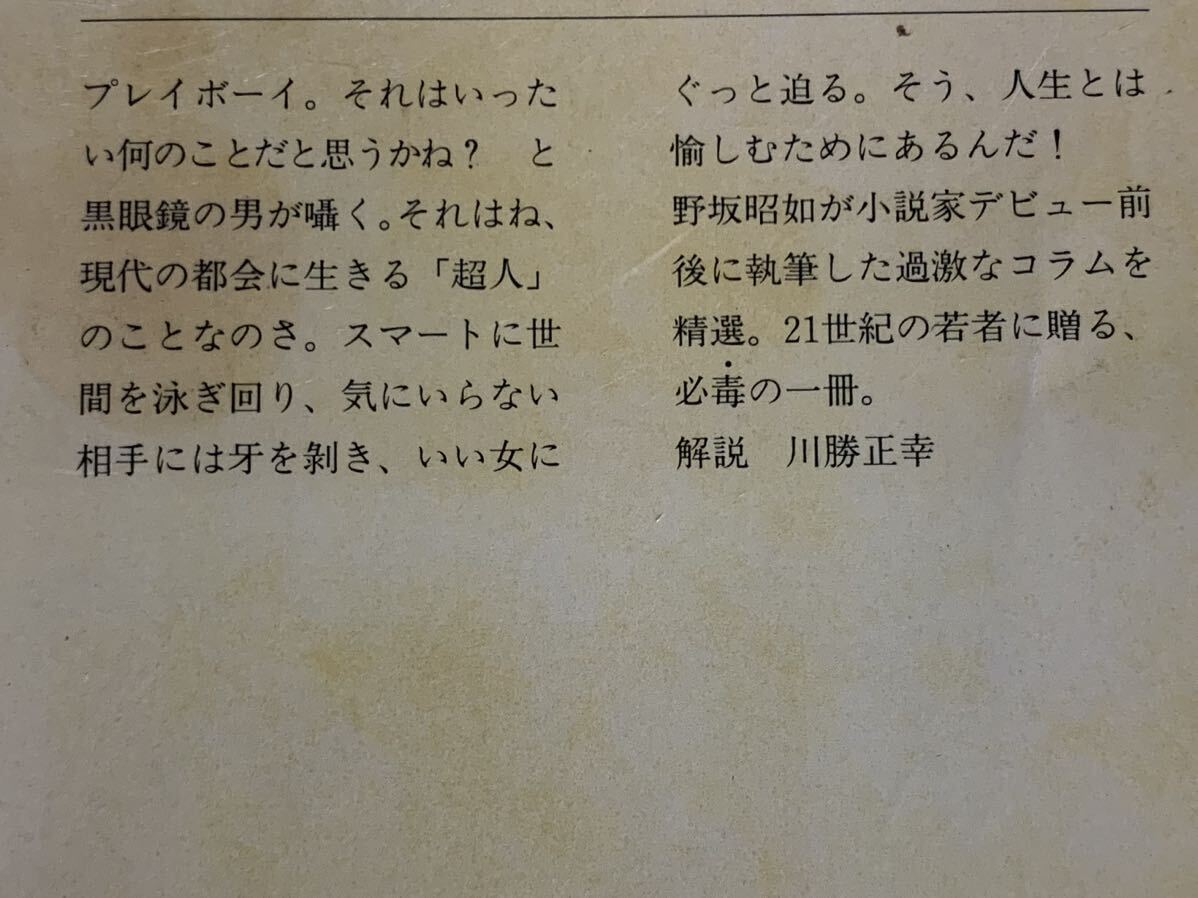 プレイボーイ。それはいった
い何のことだと思うかね？　と
黒眼鏡の男が囁く。それはね、
現代の都会に生きる「超人」
のことなのさ。スマートに世
間を泳ぎ回り、気にいらない
相手には牙を剝き、いい女に
ぐっと迫る。そう、人生とは
愉しむためにあるんだ！
野坂昭如が小説家デビュー前
後に執筆した過激なコラムを
精選。21世紀の若者に贈る、
必毒の一冊。
解説　川勝正幸